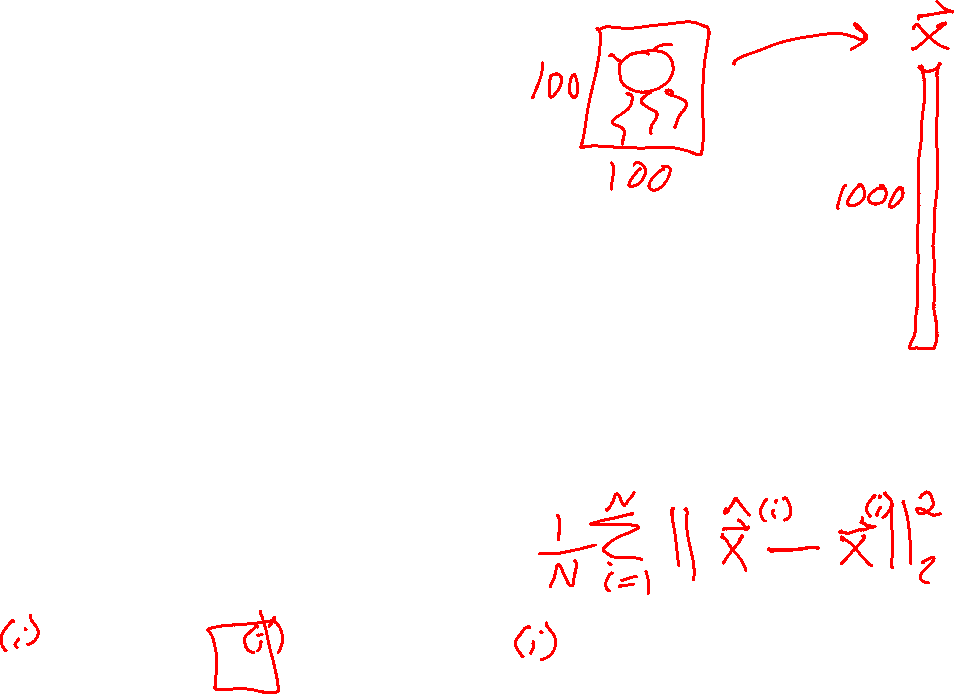 x⃗
100
100
1000
1/N ∑_{i=1}^{N} || x̂⃗^{(i)} − x⃗^{(i)} ||_2^2
(i) (i) (i)